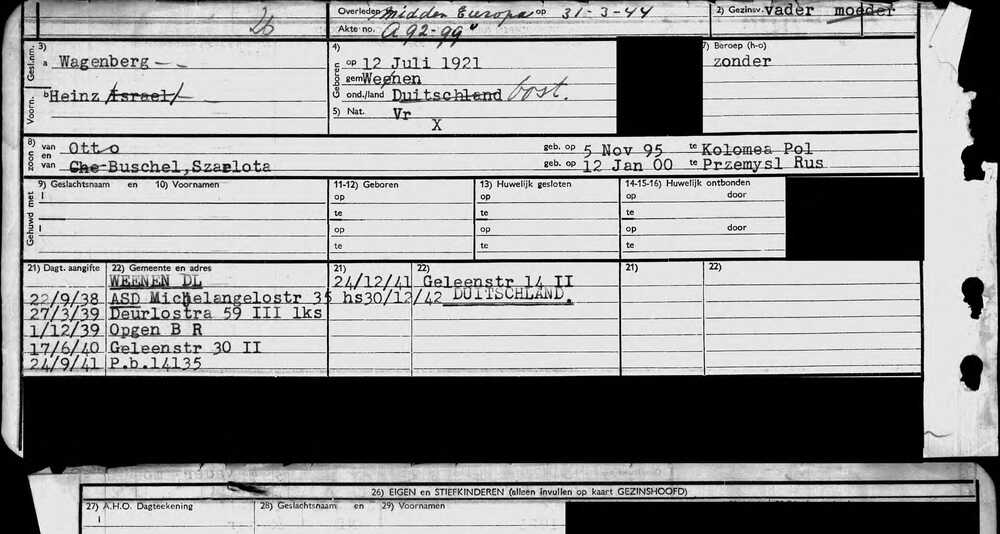 26 Overleden Midden Europa op 31-3-44 2) Gezinsv. vader moeder
Akte no. A 92-99"
Gesl.nm. 3) a Wagenberg
Voorn. b Heinz Israel
Geboren 4) op 12 Juli 1921
gem Weenen
ond./land Duitschland oost.
5) Nat. Vr
X
7) Beroep (h-o)
zonder
8) zoon van en van
Otto geb. op 5 Nov 95 te Kolomea Pol
Che Buschel,Szarlota geb. op 12 Jan 00 te Przemysl Rus
Gehuwd met 9) Geslachtsnaam en 10) Voornamen 11-12) Geboren 13) Huwelijk gesloten 14-15-16) Huwelijk ontbonden
I op op op door
te te te
I op op op door
te te te
21) Dagt. aangifte 22) Gemeente en adres 21) 22) 21) 22)
WEENEN DL 24/12/41 Geleenstr 14 II
22/9/38 ASD Michelangelostr 35 hs 30/12/42 DUITSCHLAND.
27/3/39 Deurlostra 59 III lks
1/12/39 Opgen B R
17/6/40 Geleenstr 30 II
24/9/41 P.b.14135
26) EIGEN en STIEFKINDEREN (alleen invullen op kaart GEZINSHOOFD)
27) A.H.O. Dagteekening 28) Geslachtsnaam en 29) Voornamen
I